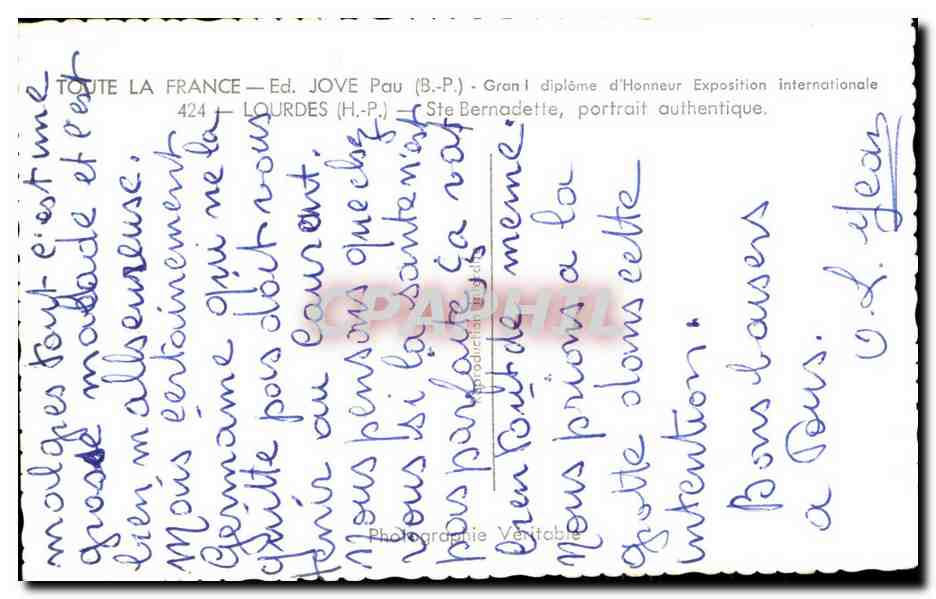 TOUTE LA FRANCE — Ed. JOVE Pau (B.-P.) - Gran l diplôme d'Honneur Exposition internationale
424 — LOURDES (H.-P.) — Ste Bernadette, portrait authentique.
malgrès tout c'est une
grosse malade et c'est
bien malheureuse.
Mais certainement
Germaine qui ne la
quitte pas doit vous
tenir au courant.
Nous pensons que chez
vous si la santé n'est
pas parfaite, ça vat
bien tout de même.
Nous prions a la
grotte dans cette
intention.
Bons baisers
a Tous.
O.L. Jean
Reproduction interdite
Photographie Véritable
CPAPHIL